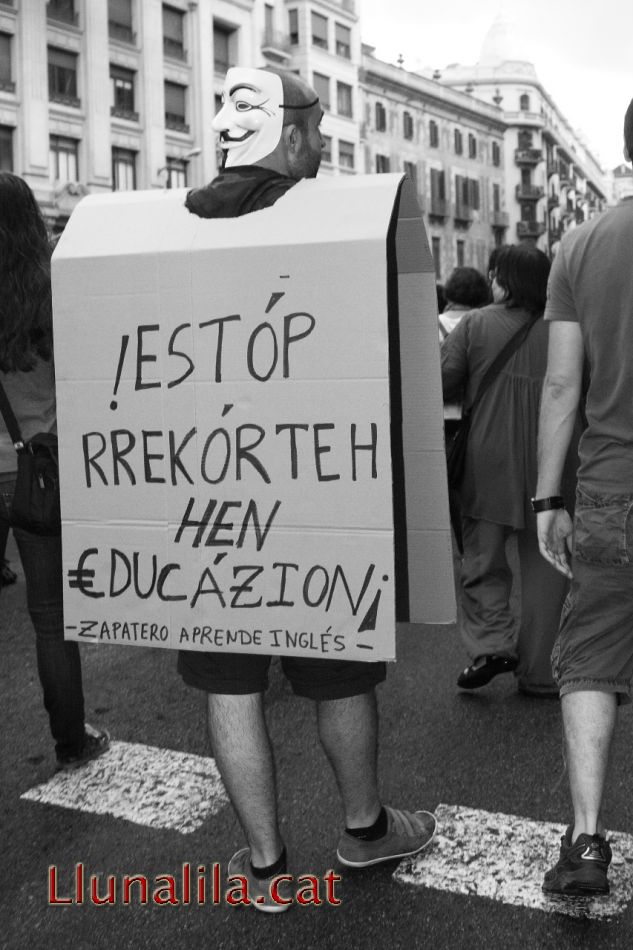 !ESTÓP
RREKÓRTEH
HEN
€DUCÁZION¡
-ZAPATERO APRENDE INGLÉS-
Llunalila.cat